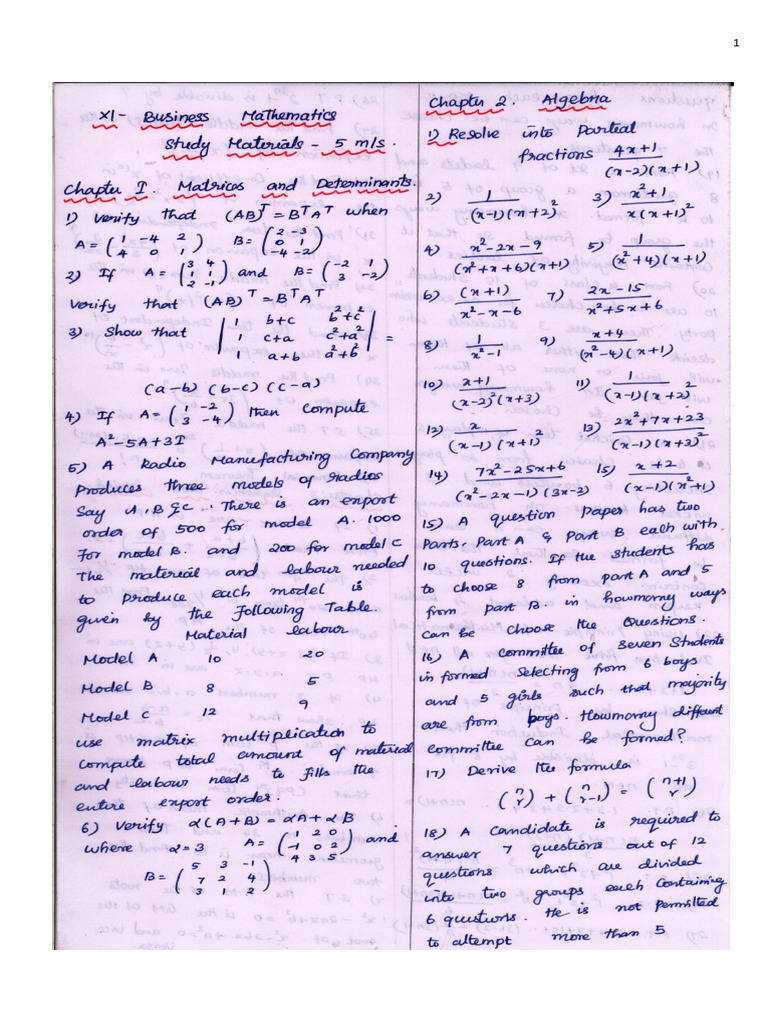 1
XI - Business Mathematics
Study Materials - 5 m/s.
Chapter I. Matricas and Determinants.
1) Verify that (AB)ᵀ = BᵀAᵀ when
A = (1 -4 2 / 4 0 1) B = (2 -3 / 0 1 / -4 -2)
2) If A = (3 4 / 1 1 / 2 -1) and B = (-2 1 / 3 -2)
Verify that (AB)ᵀ = BᵀAᵀ
3) Show that |1 b+c b²+c² / 1 c+a c²+a² / 1 a+b a²+b²| =
(a-b) (b-c) (c-a)
4) If A = (1 -2 / 3 -4) then compute
A² - 5A + 3I
5) A Radio Manufacturing Company
Produces three models of radios
Say A, B & C. There is an export
order of 500 for model A. 1000
For model B. and 200 for model C
The material and labour needed
to produce each model is
given by the following Table.
Material labour
Model A 10 20
Model B 8 5
Model C 12 9
use matrix multiplication to
compute total amount of material
and labour needs to fills the
entire export order.
6) Verify α(A+B) = αA + αB
where α=3 A = (1 2 0 / -1 0 2 / 4 3 5) and
B = (5 3 -1 / 7 2 4 / 3 1 2)
Chapter 2. Algebra
1) Resolve into Partial
fractions (4x+1)/((x-2)(x+1))
2) 1/((x-1)(x+2)²) 3) (x²+1)/(x(x+1)²)
4) (x²-2x-9)/((x²+x+6)(x+1)) 5) 1/((x²+4)(x+1))
6) (x+1)/(x²-x-6) 7) (2x-15)/(x²+5x+6)
8) 1/(x²-1) 9) (x+4)/((x²-4)(x+1))
10) (x+1)/((x-2)²(x+3)) 11) 1/((x-1)(x+2)²)
12) x/((x-1)(x+1)²) 13) (2x²+7x+23)/((x-1)(x+3)²)
14) (7x²-25x+6)/((x²-2x-1)(3x-2)) 15) (x+2)/((x-1)(x²+1))
15) A question paper has two
Parts, Part A & Part B each with
10 questions. If the students has
to choose 8 from part A and 5
from part B. in howmany ways
can be choose the Questions.
16) A committee of seven Students
in formed selecting from 6 boys
and 5 girls such that majority
are from boys. Howmany different
committee can be formed?
17) Derive the formula
(n r) + (n r-1) = (n+1 r)
18) A candidate is required to
answer 7 questions out of 12
questions which are divided
into two groups each containing
6 questions. He is not permitted
to attempt more than 5